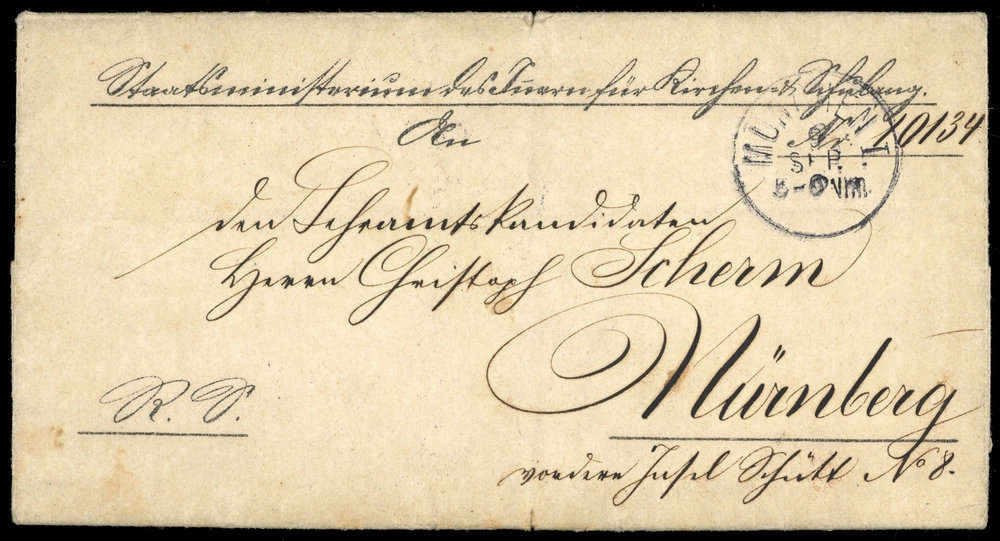 Staatsministerium des Innern für Kirchen- & Schulang.
Nr. 10134
MÜNCHEN I
9
SEP.
NM.
An
den Lehramtskandidaten
Herrn Christoph Scherm
Nürnberg
R. S.
vordere Insel Schütt No 8.